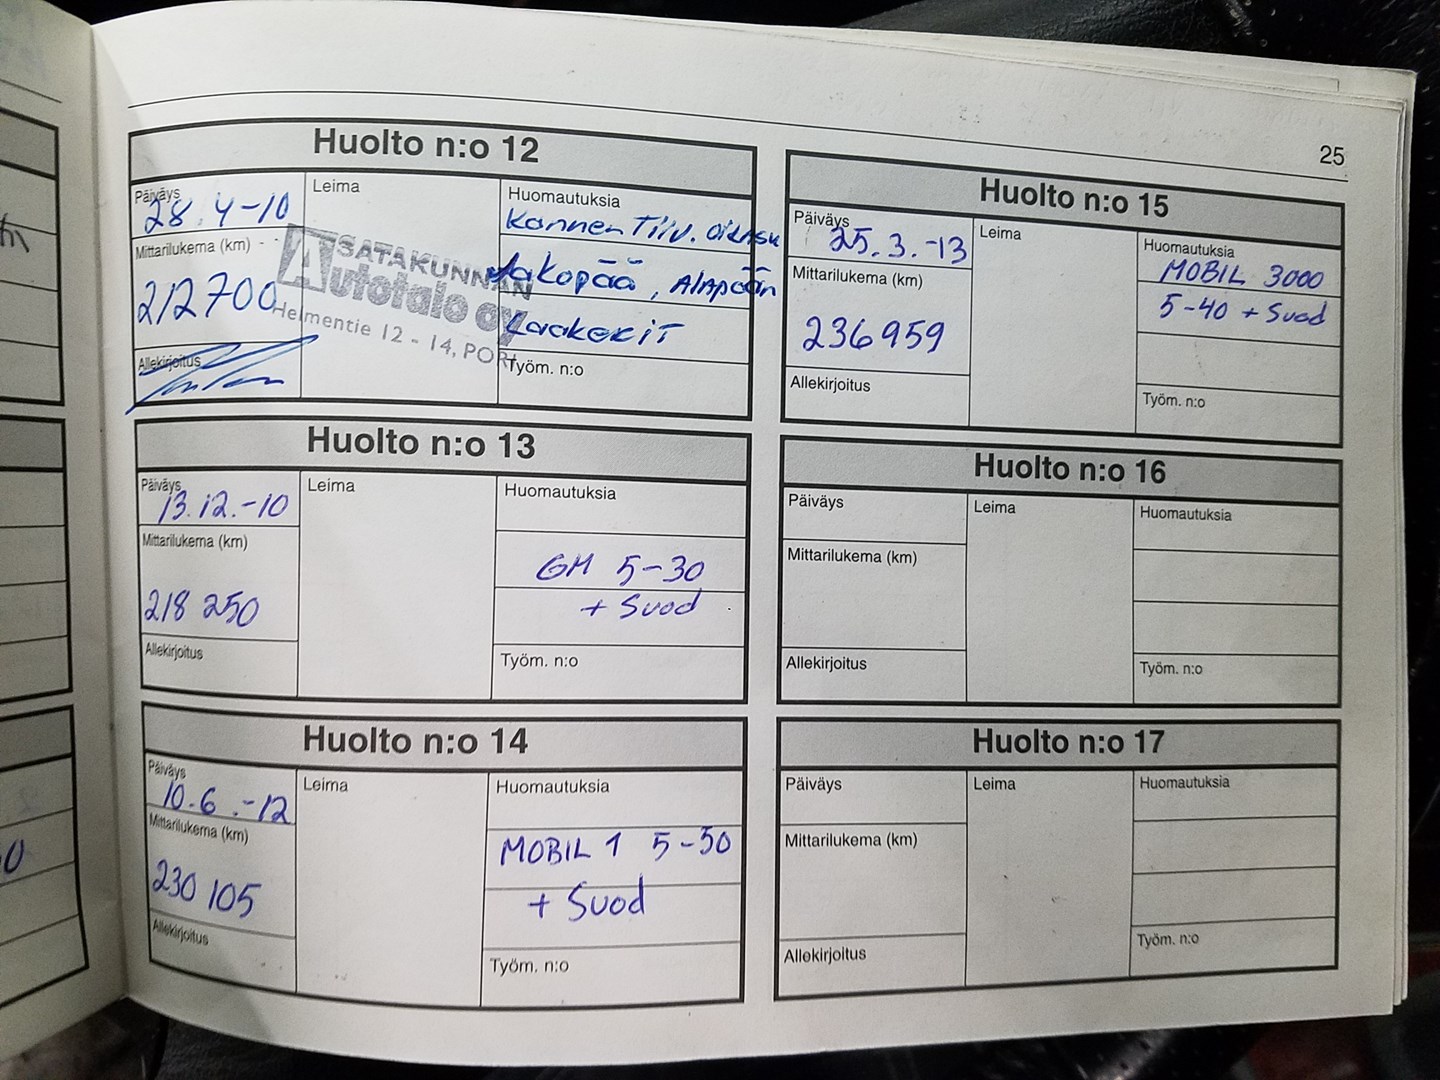 25
Huolto n:o 12
Päiväys
28.4-10
Mittarilukema (km)
212700
Allekirjoitus
Leima
SATAKUNNAN
Autotalo oy
Helmentie 12 - 14, PORI
Huomautuksia
Kannen Tiiv. oikasu
Jakopää, Alapään
Laakerit
Työm. n:o
Huolto n:o 13
Päiväys
13.12.-10
Mittarilukema (km)
218 250
Allekirjoitus
Leima
Huomautuksia
GM 5-30
+ Suod
Työm. n:o
Huolto n:o 14
Päiväys
10.6.-12
Mittarilukema (km)
230 105
Allekirjoitus
Leima
Huomautuksia
MOBIL 1 5-30
+ Suod
Työm. n:o
Huolto n:o 15
Päiväys
25.3.-13
Mittarilukema (km)
236959
Allekirjoitus
Leima
Huomautuksia
MOBIL 3000
5-40 + Suod
Työm. n:o
Huolto n:o 16
Päiväys
Mittarilukema (km)
Allekirjoitus
Leima
Huomautuksia
Työm. n:o
Huolto n:o 17
Päiväys
Mittarilukema (km)
Allekirjoitus
Leima
Huomautuksia
Työm. n:o